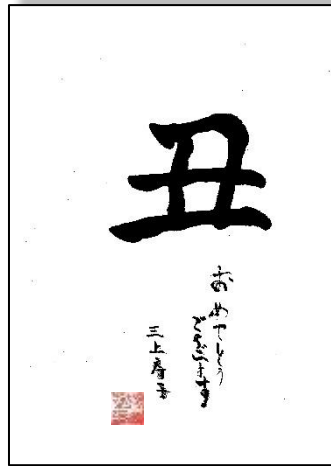 丑
おめでとう
ございます
三上